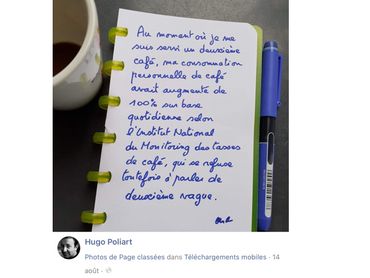 Au moment où je me
suis servi un deuxième
café, ma consommation
personnelle de café
avait augmenté de
100% sur base
quotidienne selon
l'Institut National
du Monitoring des tasses
de café, qui se refuse
toutefois à parler de
deuxième vague.
Hugo Poliart
Photos de Page classées dans Téléchargements mobiles · 14
août ·